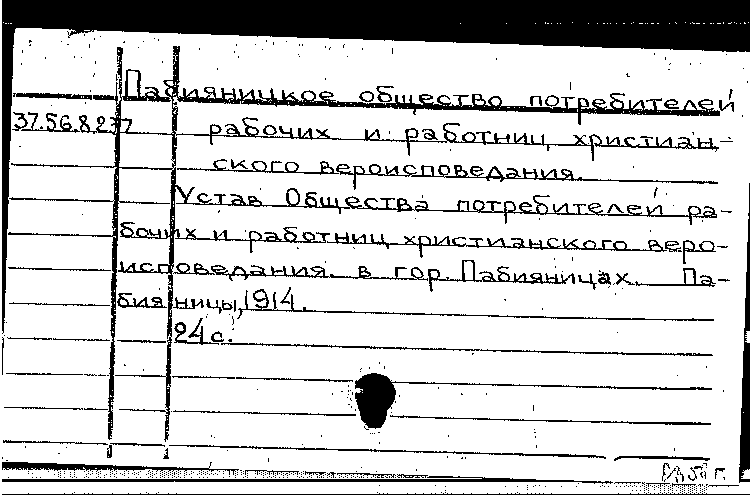 Пабияницкое общество потребителей
37.56.8.237 рабочих и работниц христиан-
ского вероисповедания.
Устав Общества потребителей ра-
бочих и работниц христианского веро-
исповедания в гор. Пабияницах. Па-
бияницы, 1914.
24 с.